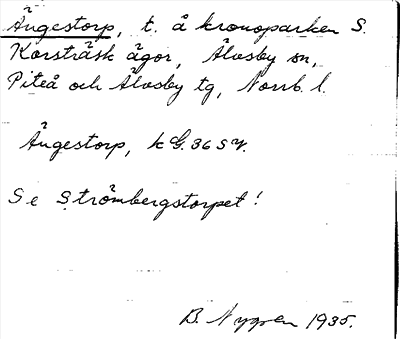 Ängestorp, t. å kronoparken S.
Korsträsk ägor, Älvsby sn,
Piteå och Älvsby tg, Norrb. l.
Ängestorp, k G. 36 SV.
Se Strömbergstorpet!
B. Nygren 1935.